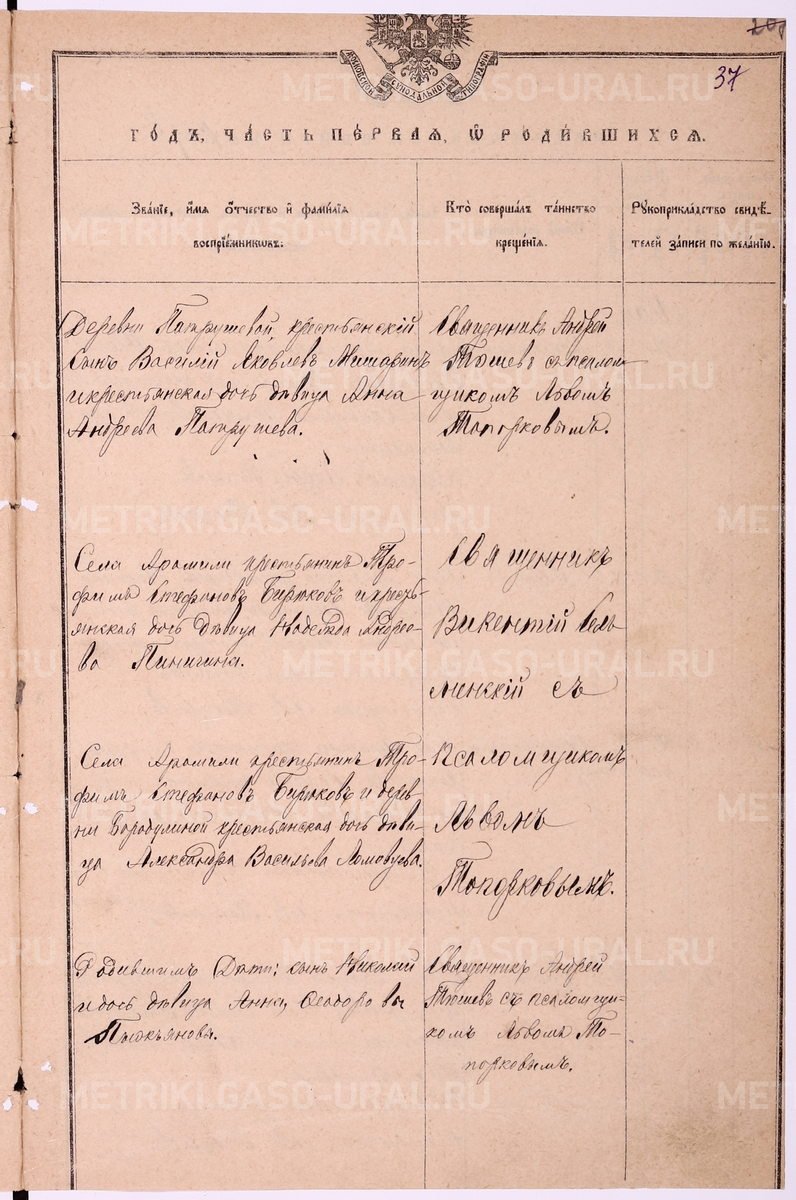 37
МОСКОВСКОЙ СѴНОДАЛЬНОЙ ТИПОГРАФІИ
ГО́ДЪ, ЧА́СТЬ ПЕ́РВАЯ, Ѿ РОДИ́ВШИХСЯ.
Зва́нїе, и҆́мя ѻ҆́тчество и҆ фами́лїя
воспрїе́мниковъ:
Кто̀ соверша́лъ та́инство
креще́нїя.
Рꙋкоприкла́дство свидѣ́-
телей за́писи по жела́нїю.
Деревни Патрушевой, крестьянскій
сынъ Василій Яковлевъ Мишаринъ
и крестьянская дочь дѣвица Анна
Андреева Патрушева.
Священникъ Андрей
Тюшевъ съ псалом
щикомъ Львомъ
Топорковымъ.
Села Арамили крестьянинъ Тро-
фимъ Стефановъ Бирюковъ и кресть-
янская дочь дѣвица Надежда Андрее-
ва Пинигина.
Села Арамили крестьянинъ Тро-
фимъ Стефановъ Бирюковъ и дерев
ни Бородулиной крестьянская дочь дѣви-
ца Александра Васильева Ломовцева.
Священникъ
Викентій Сель
менскій съ
псаломщикомъ
Львомъ
Топорковымъ.
Родившимъ Дѣти: сынъ Николай
и дочь дѣвица Анна, Ѳеодоровы
Пьянковы.
Священникъ Андрей
Тюшевъ съ псаломщи-
комъ Львомъ То-
порковымъ.
METRIKI.GASO-URAL.RU